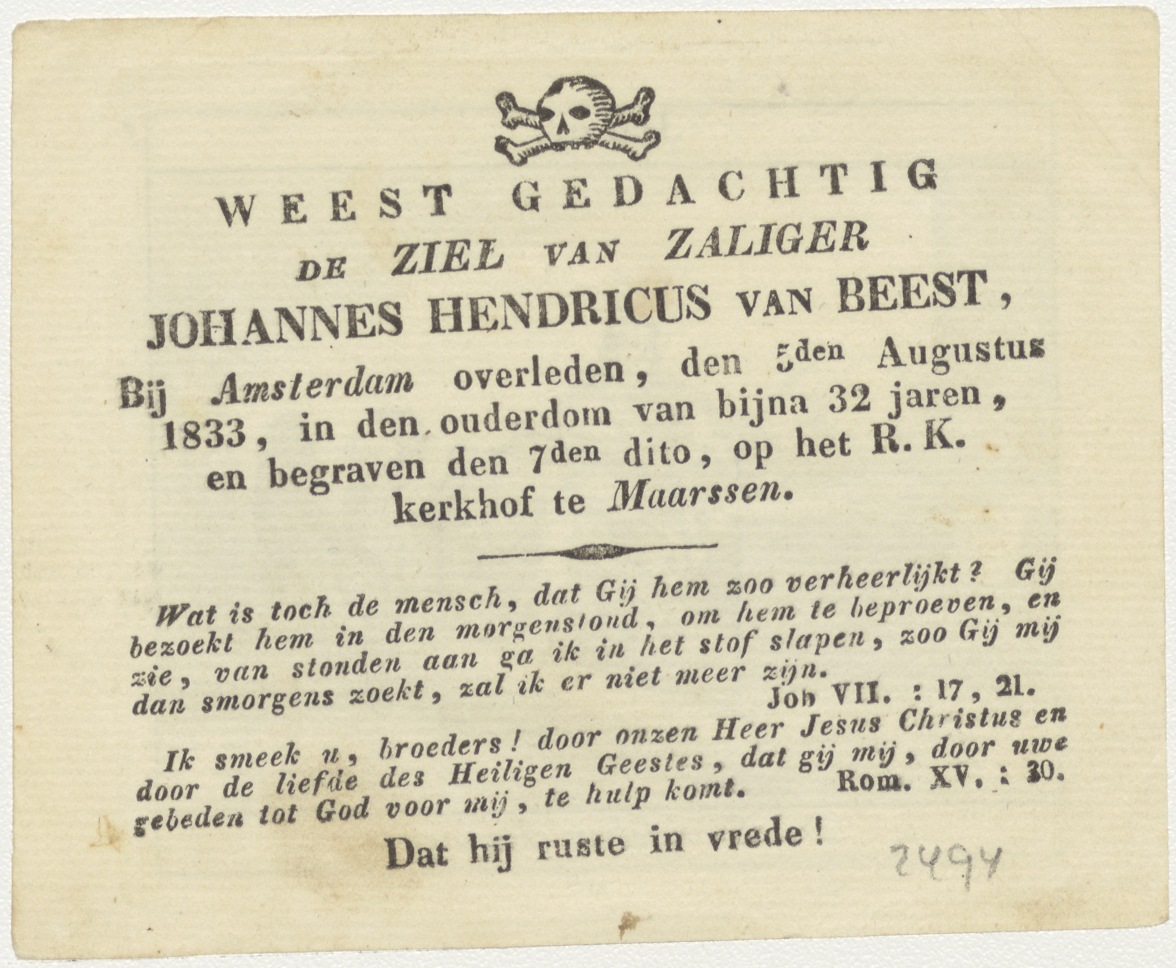 WEEST GEDACHTIG
DE ZIEL VAN ZALIGER
JOHANNES HENDRICUS VAN BEEST,
Bij Amsterdam overleden, den 5den Augustus
1833, in den ouderdom van bijna 32 jaren,
en begraven den 7den dito, op het R. K.
kerkhof te Maarssen.
Wat is toch de mensch, dat Gij hem zoo verheerlijkt? Gij
bezoekt hem in den morgenstond, om hem te beproeven, en
zie, van stonden aan ga ik in het stof slapen, zoo Gij mij
dan smorgens zoekt, zal ik er niet meer zijn.
Job VII. : 17, 21.
Ik smeek u, broeders! door onzen Heer Jesus Christus en
door de liefde des Heiligen Geestes, dat gij mij, door uwe
gebeden tot God voor mij, te hulp komt. Rom. XV. : 30.
Dat hij ruste in vrede!
2494